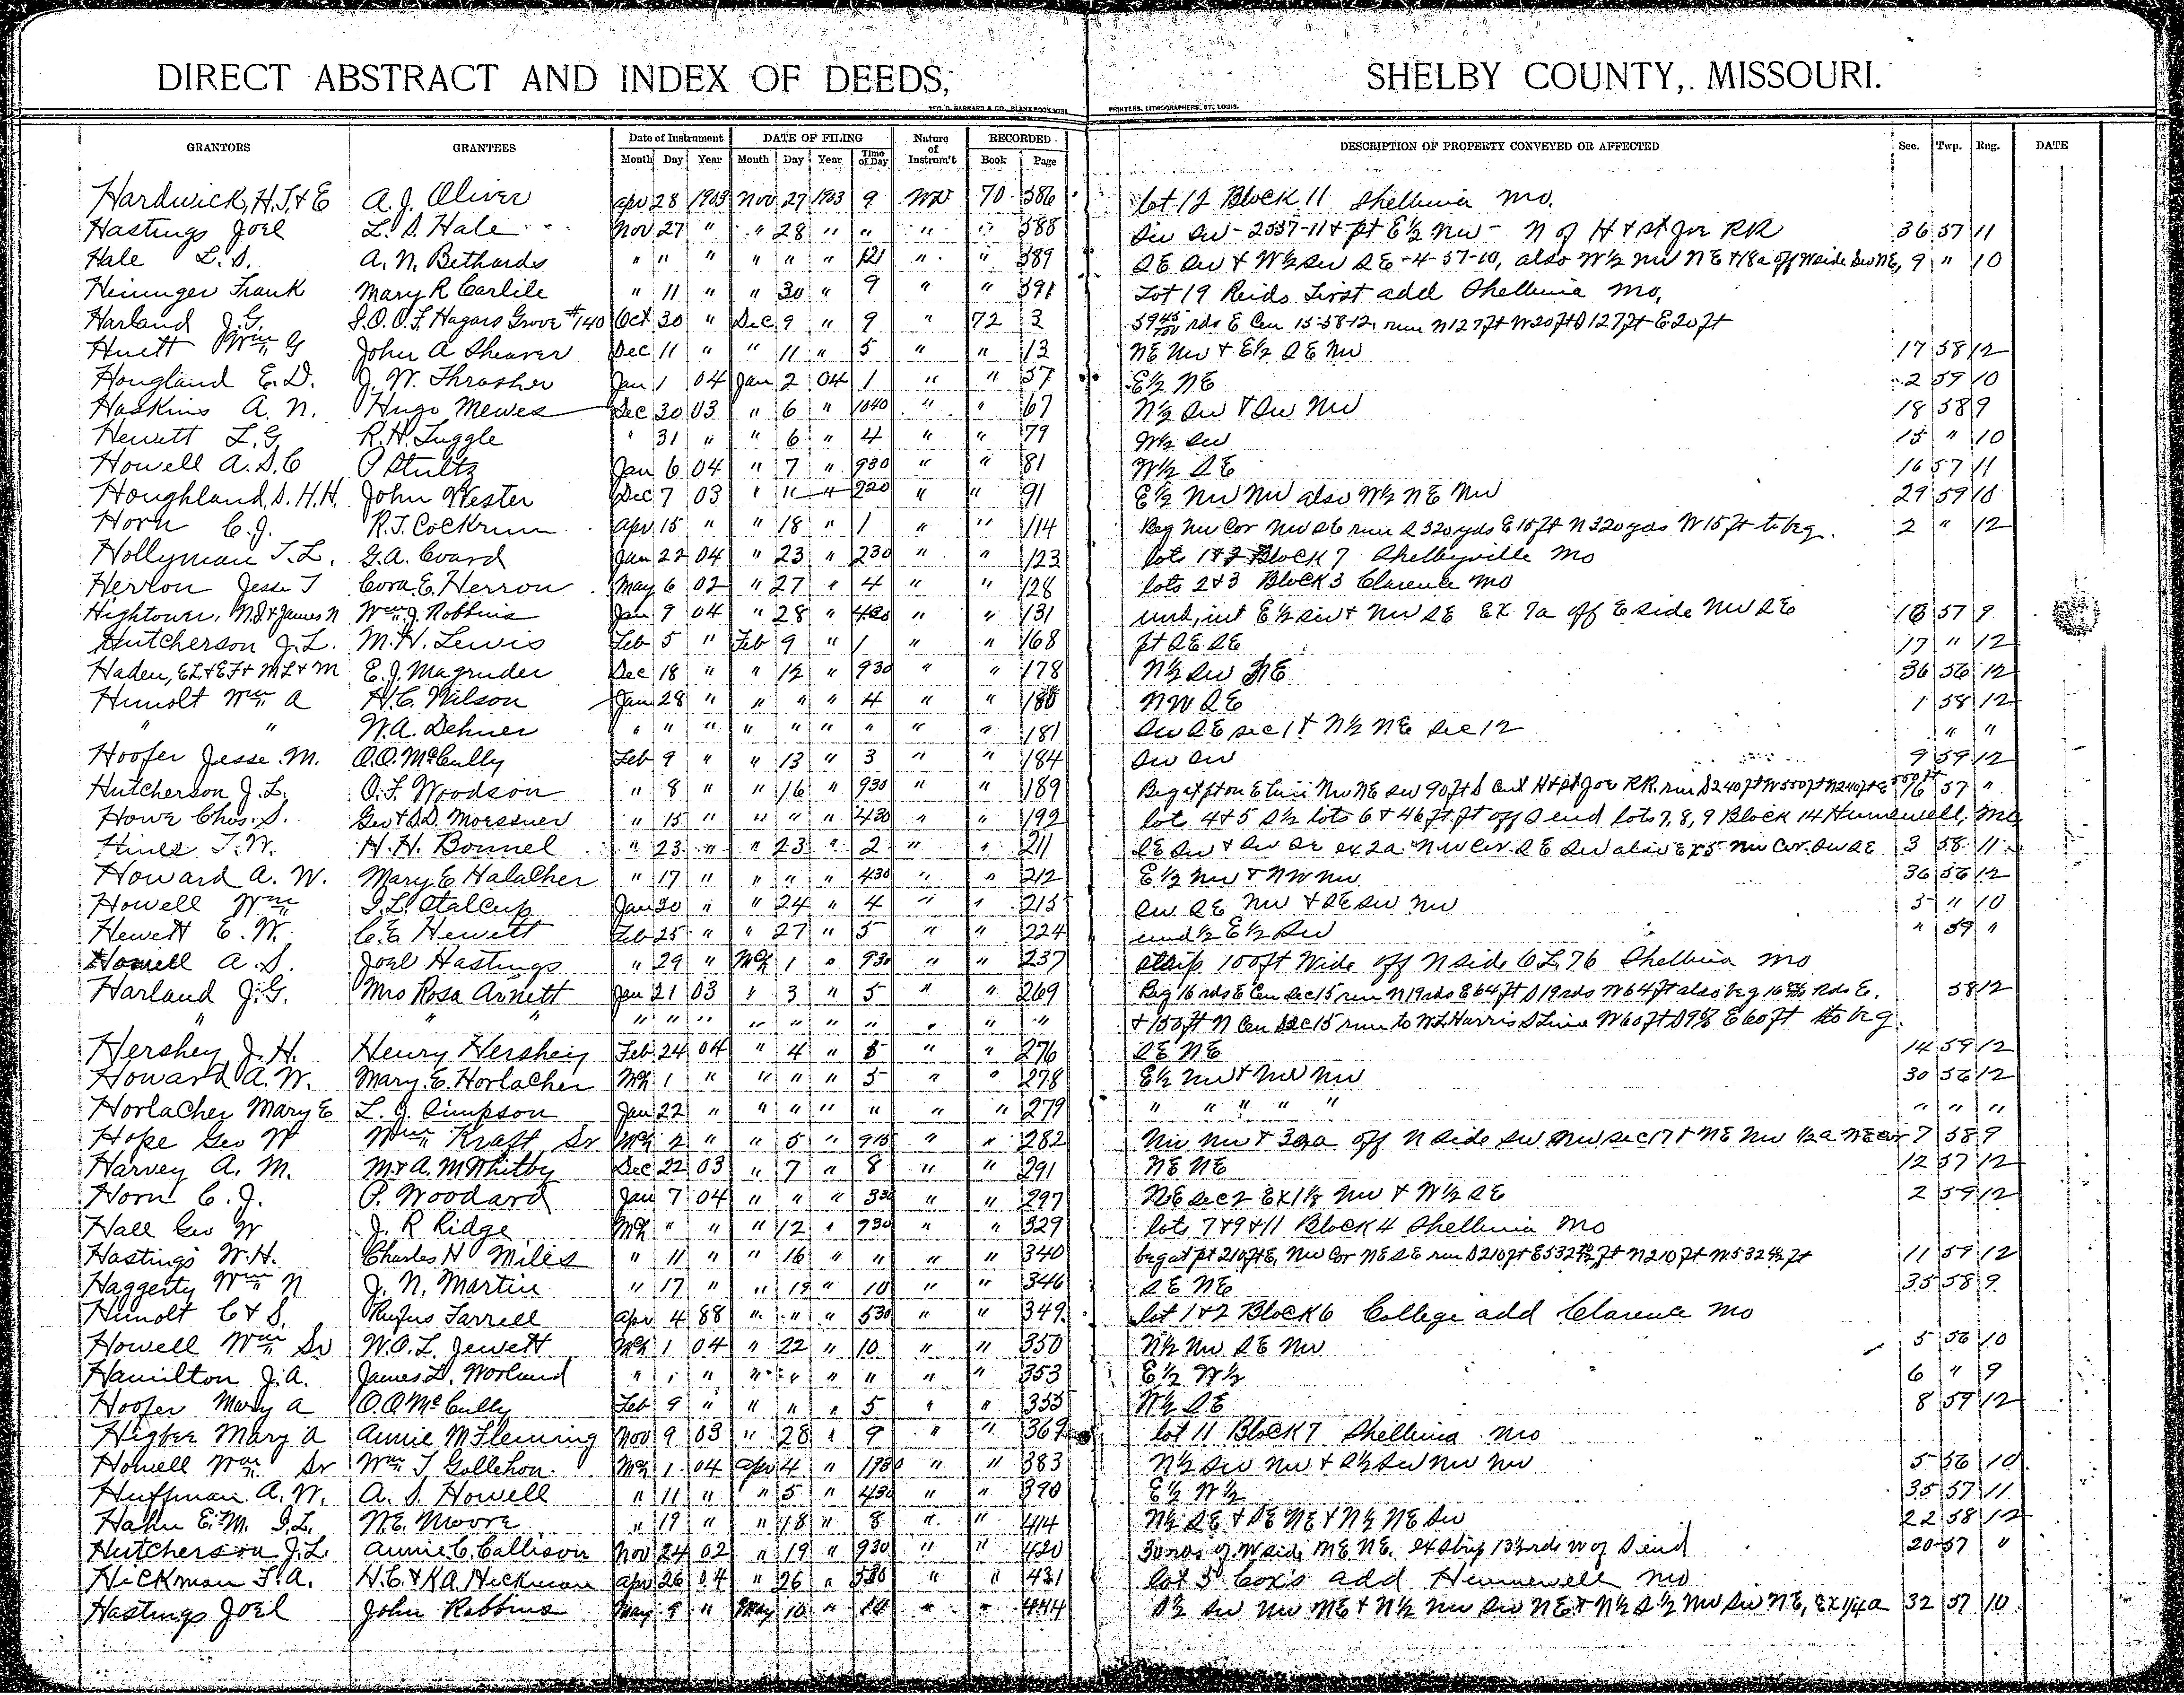 DIRECT ABSTRACT AND INDEX OF DEEDS, SHELBY COUNTY, MISSOURI.
PRINTERS, LITHOGRAPHERS, ST. LOUIS.
GRANTORS GRANTEES Date of Instrument DATE OF FILING Nature of Instrum't RECORDED DESCRIPTION OF PROPERTY CONVEYED OR AFFECTED Sec. Twp. Rng. DATE
Month Day Year Month Day Year Time of Day Book Page
Hardwick, H.T. & E A. J. Oliver Apr 28 1903 Nov 27 1903 9 WD 70 386 lot 12 Block 11 Shelbina Mo.
Hastings Joel L. S. Hale Nov 27 " " 28 " " " " 388 36 57 11
Hale L. S. A. N. Bethards " " " " " " 12 " " 389 SE SW & W½ SW SE -4-57-10, also W½ NW NE & 18a off W side SW NE, 9 " 10
Heninger Frank Mary R Carlile " 11 " " 30 " 9 " " 391 Lot 19 Reids First add Shelbina Mo,
Harland J. G. I.O.O.F. Hagars Grove #140 Oct 30 " Dec 9 " 9 " 72 3 rds E Cen 15-58-12, run N 127 ft W 20 ft S 127 ft E 20 ft
Huett Wm G John A Shearer Dec 11 " " 11 " 5 " " 13 NE NW & E½ SE NW 17 58 12
Hougland E. D. J. W. Thrasher Jan 1 04 Jan 2 04 1 " " 57 E½ NE 2 59 10
Haskins A. N. Hugo Mewes Dec 30 03 " 6 " 1040 " " 67 N½ SW & SW NW 18 58 9
Hewitt L. G. R. H. Tuggle " 31 " " 6 " 4 " " 79 W½ SW 15 " 10
Howell A. S. C P Stultz Jan 6 04 " 7 " 930 " " 81 W½ SE 16 57 11
Houghland, S. H. H. John Wester Dec 7 03 " 11 " 220 " " 91 E½ NW NW also W½ NE NW 29 59 10
Horn C. J. R. T. Cockrum Apr 15 " " 18 " 1 " " 114 Beg NW Cor NW SE run S 320 yds E 15 ft N 320 yds W 15 ft to beg. 2 " 12
Hollyman T. L. G. A. Evard Jan 22 04 " 23 " 230 " " 123 lots 1 & 2 Block 7 Shelbyville Mo
Herron Jesse T Cora E. Herron May 6 02 " 27 " 4 " " 128 lots 2 & 3 Block 3 Clarence Mo
Hightower, N.J. & James N Wm J. Robbins Jan 9 04 " 28 " 430 " " 131 und, int E½ SW & NW SE EX 7a off E side NW SE 18 57 9
Hutcherson J. L. M. H. Lewis Feb 5 " Feb 9 " 1 " " 168 pt SE SE 17 " 12
Haden, EL & EF & ML & M E. J. Magruder Dec 18 " " 12 " 930 " " 178 N½ SW NE 36 56 12
Hunolt Wm A H. C. Wilson Jan 28 " " " " 4 " " 180 NW SE 1 58 12
" " W. A. Dehner " " " " " " " " " 181 SW SE sec 1 & N½ NE Sec 12 " "
Hoofer Jesse M. O. O. McCully Feb 9 " " 13 " 3 " " 184 SW SW 9 59 12
Hutcherson J. L. O. F. Woodson " 8 " " 16 " 930 " " 189 Beg at pt on E line NW NE SW 90 ft S Cent H & St Joe RR. run S 240 ft W 550 ft N 240 ft E 550 ft 16 57 "
Howe Chas. S. Geo & S. D. Moessner " 15 " " " " 430 " " 192 lot 4 & 5 S½ lots 6 & 46 ft off S end lots 7, 8, 9 Block 14 Hunnewell, Mo,
Hines T. W. H. H. Bonnel " 23 " " 23 " 2 " " 211 SE SW & SW SE ex 2a NW Cor SE SW also EX 5 NW Cor. SW SE 3 58 11
Howard A. W. Mary E Halacher " 17 " " " " 430 " " 212 E½ NW & NW NW 36 56 12
Howell Wm I. L. Stalcup Jan 30 " " 24 " 4 " " 215 SW SE NW & SE SW NW 5 " 10
Hewett E. W. C. E. Hewett Feb 25 " " 27 " 5 " " 224 und ½ E½ SW " 59 "
Howell A. S. Joel Hastings " 29 " Mch 1 " 930 " " 237 strip 100 ft Wide off N side O L 76 Shelbina Mo
Harland J. G. Mrs Rosa Arnett Jan 21 03 " 3 " 5 " " 269 Beg 16 rds E Cen Sec 15 run N 19 rds E 64 ft S 19 rds W 64 ft also beg 16 Rds E. 58 12
" " " " " " " " " " " " " & 150 ft N Cen Sec 15 run to W. L. Harris S Line W 60 ft E 60 ft to beg.
Hershey, J. H. Henry Hershey Feb 24 04 " 4 " 8 " " 276 SE NE 14 59 12
Howard A. W. Mary E. Horlacher Mch 1 " " " " 5 " " 278 E½ NW & NW NW 30 56 12
Horlacher Mary E L. J. Simpson Jan 22 " " " " " " " 279 " " " " " " " "
Hope Geo W Wm Kraft Sr Mch 2 " " 5 " 915 " " 282 NW NW & 30a off N side SW NW sec 17 & NE NW ½a NE cor 7 58 9
Harvey A. M. M & A. M Whitby Dec 22 03 " 7 " 8 " " 291 NE NE 12 57 12
Horn C. J. P. Woodard Jan 7 04 " " " 330 " " 297 NE sec 2 EX 1⅛ NW & W½ SE 2 59 12
Hall Geo W J. R Ridge Mch " " " 12 " 730 " " 329 lots 7 & 9 & 11 Block 4 Shelbina Mo
Hastings W. H. Charles H Miles " 11 " " 16 " " " " 340 beg at pt 210 ft E, NW Cor NE SE run S 210 ft E 532 ft N 210 ft W 532 ft 11 59 12
Haggerty Wm N J. N. Martin " 17 " " 19 " 10 " " 346 SE NE 35 58 9
Hunolt C & S. Rufus Farrell Apr 4 88 " " " 530 " " 349 lot 1 & 2 Block 6 College add Clarence Mo
Howell Wm Sr W. O. L. Jewett Mch 1 04 " 22 " 10 " " 350 N½ NW SE NW 5 56 10
Hamilton J. A. James L. Worland " " " " " " " " " 353 E½ W½ 6 " 9
Hoofer Mary A O. O McCully Feb 9 " " " " 5 " " 355 W½ SE 8 59 12
Higbee Mary A Annie M Fleming Nov 9 03 " 28 " 9 " " 369 lot 11 Block 7 Shelbina Mo
Howell Wm Sr Wm T Gollehon Mch 1 04 Apr 4 " " " 383 N½ SW NW & S½ SW NW NW 5 56 10
Huffman A. W. A. S. Howell " 11 " " 5 " 430 " " 390 E½ W½ 35 57 11
Hahn E. M. I. L. W. E. Moore " 19 " " 18 " 8 " " 414 N½ SE & SE NE & N½ NE SW 22 58 12
Hutcherson J. L Annie C. Callison Nov 24 02 " 19 " 930 " " 420 30 rds of W side NE NE. ex strip 13½ rds W of S end 20 57 "
Hickman F. A. H. C. & K A. Hickman Apr 26 04 " 26 " 530 " " 431 lot 5 Cox's add Hunnewell Mo
Hastings Joel John Robbins May 9 " May 10 " 10 " " 444 S½ SW NW NE & N½ NW SW NE & N½ S½ NW SW NE, EX 1/4 a 32 57 10